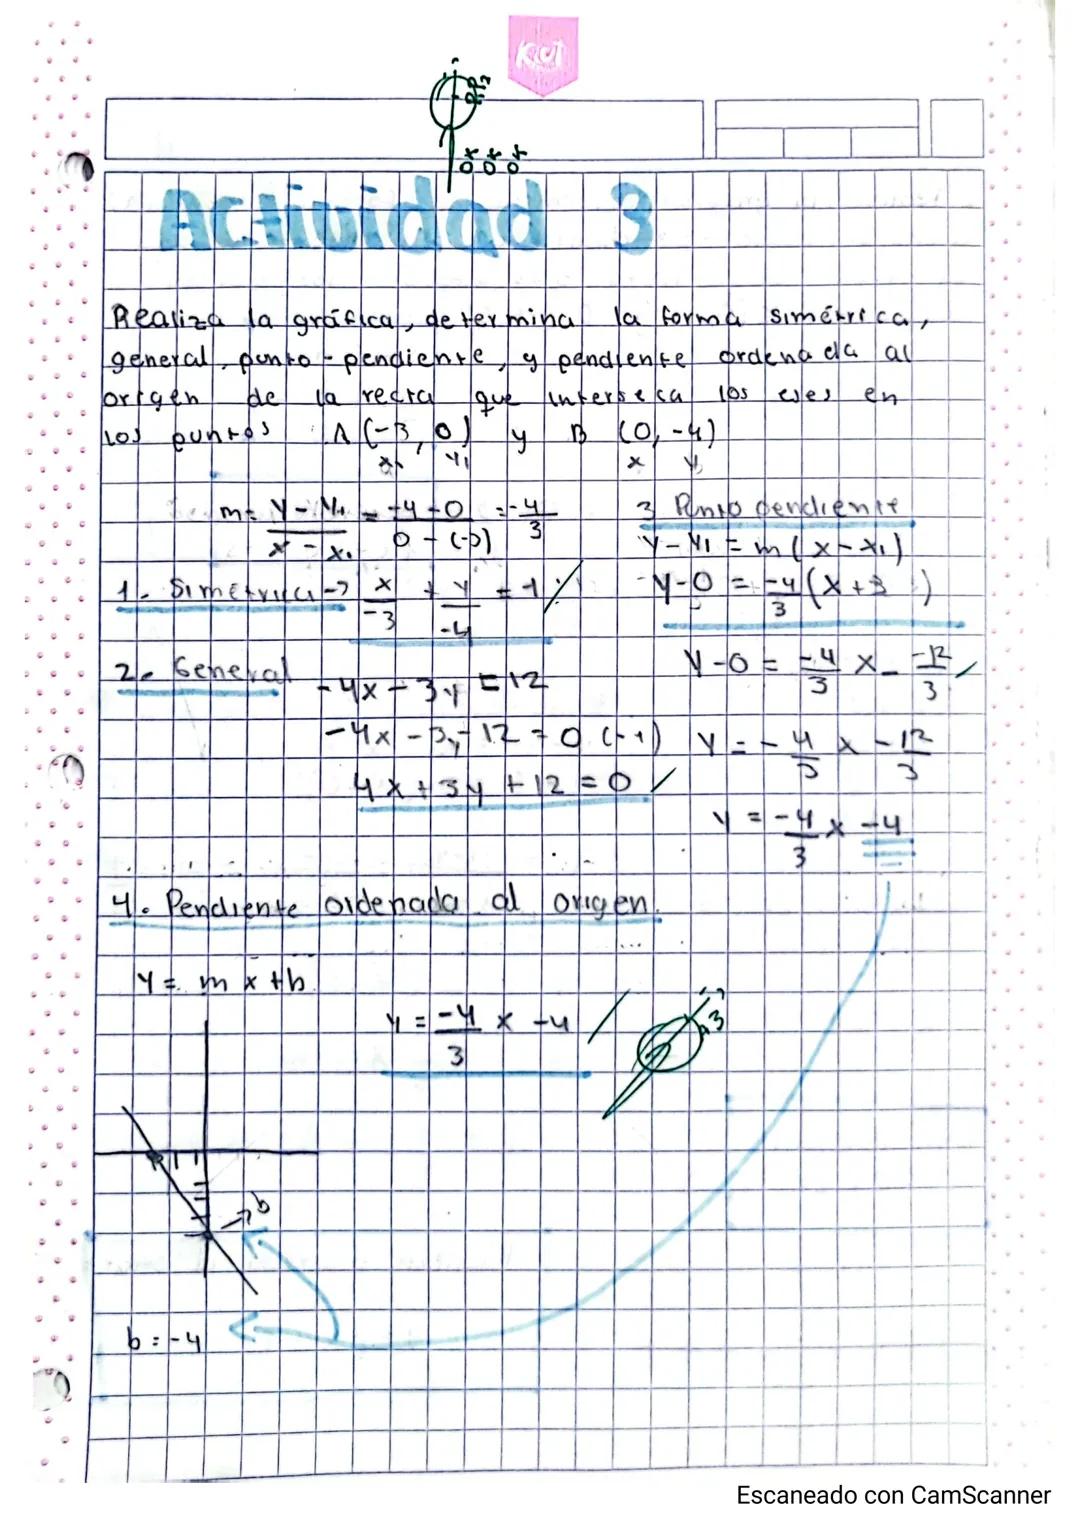 Kiut
Actividad 3
Realiza la gráfica, determina la forma simétrica,
general, punto-pendiente, y pendiente ordenada al
origen de la recta que interseca los ejes en
los puntos A (-3, 0) y B (0, -4)
x₁ y₁ x y
m = y - y₁ / x - x₁ = -4 - 0 / 0 - (-3) = -4/3
1.- Simétrica → x/-3 + y/-4 = 1
2.- General
-4x - 3y = 12
-4x - 3y - 12 = 0 (-1)
4x + 3y + 12 = 0
3 Punto pendiente
y - y₁ = m (x - x₁)
y - 0 = -4/3 (x + 3)
y - 0 = -4/3 x - -12/3
y = -4/3 x - 12/3
y = -4/3 x - 4
4. Pendiente ordenada al origen.
y = m x + b
y = -4/3 x - 4
b
b = -4
Escaneado con CamScanner